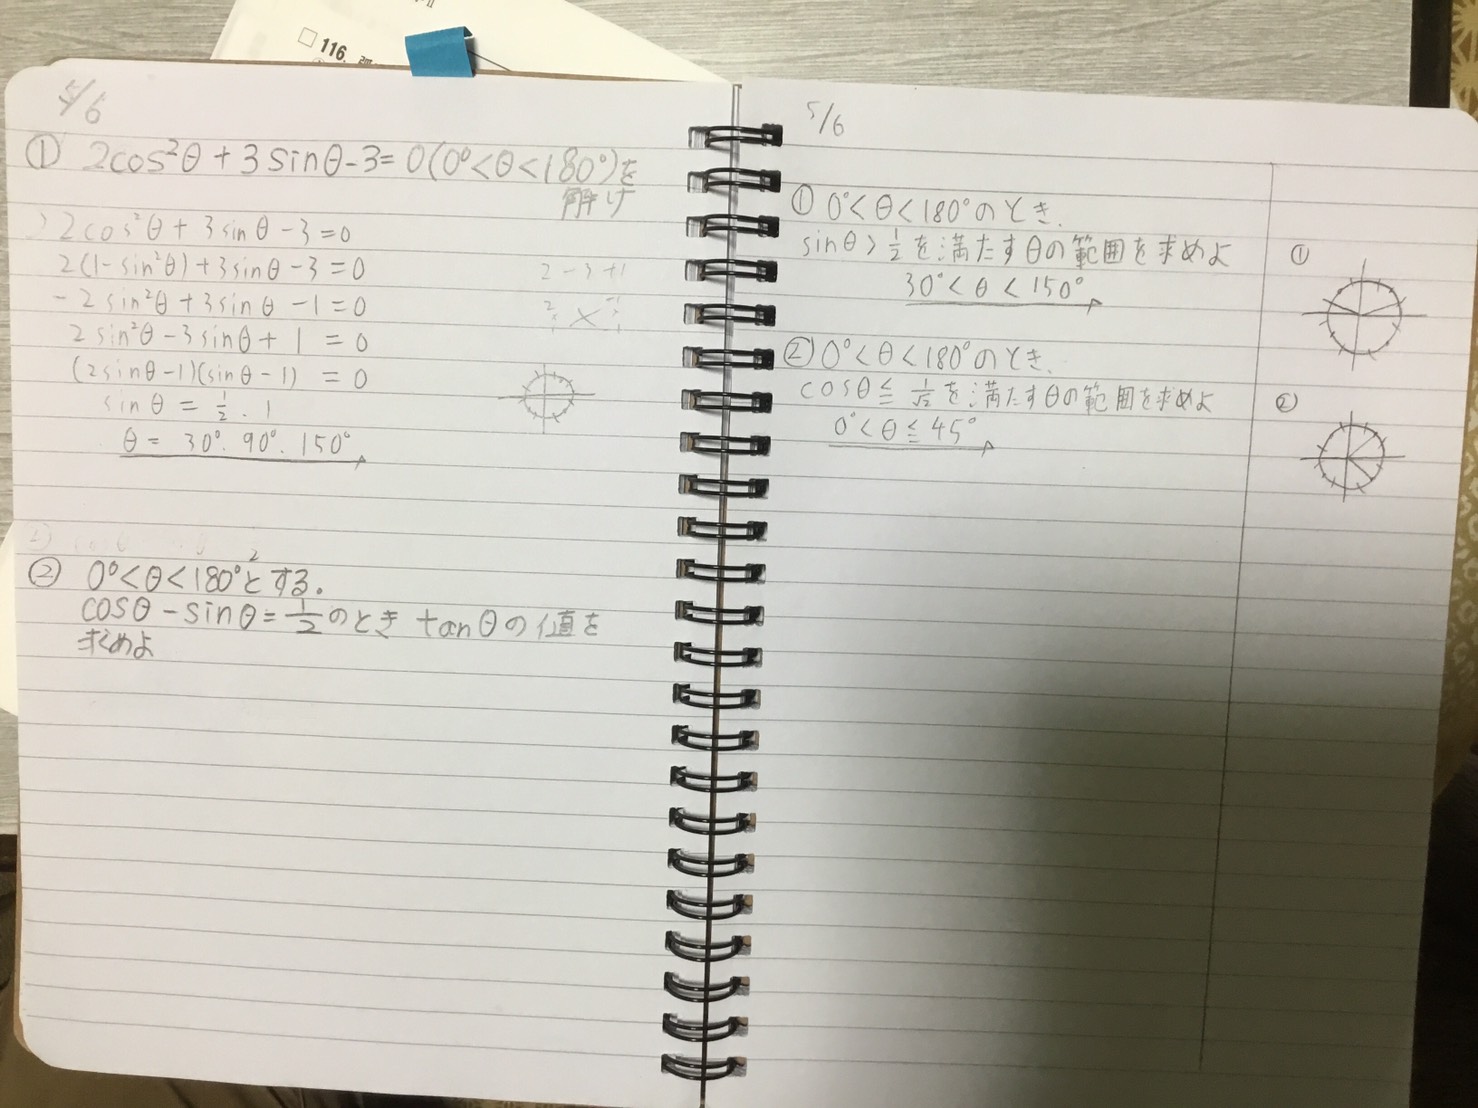 116
5/6
① 2cos²θ + 3sinθ-3= 0(0°<θ<180°)を
解け
2cos²θ + 3sinθ-3=0
2(1-sin²θ)+3sinθ-3=0
-2sin²θ+3sinθ-1=0
2sin²θ-3sinθ+1=0
(2sinθ-1)(sinθ-1)=0
sinθ=1/2.1
θ= 30°.90°.150°
2-3+1
② 0°<θ<180°とする。
cosθ-sinθ=1/2のとき tanθの値を
求めよ
5/6
① 0°<θ<180°のとき.
sinθ>1/2を満たすθの範囲を求めよ
30°<θ<150°
② 0°<θ<180°のとき.
cosθ≦1/√2を満たすθの範囲を求めよ
0°<θ≦45°
①
②